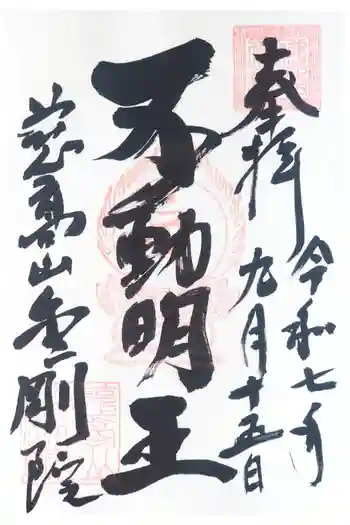 奉拝
令和七年
九月十五日
不動明王
高山金剛院